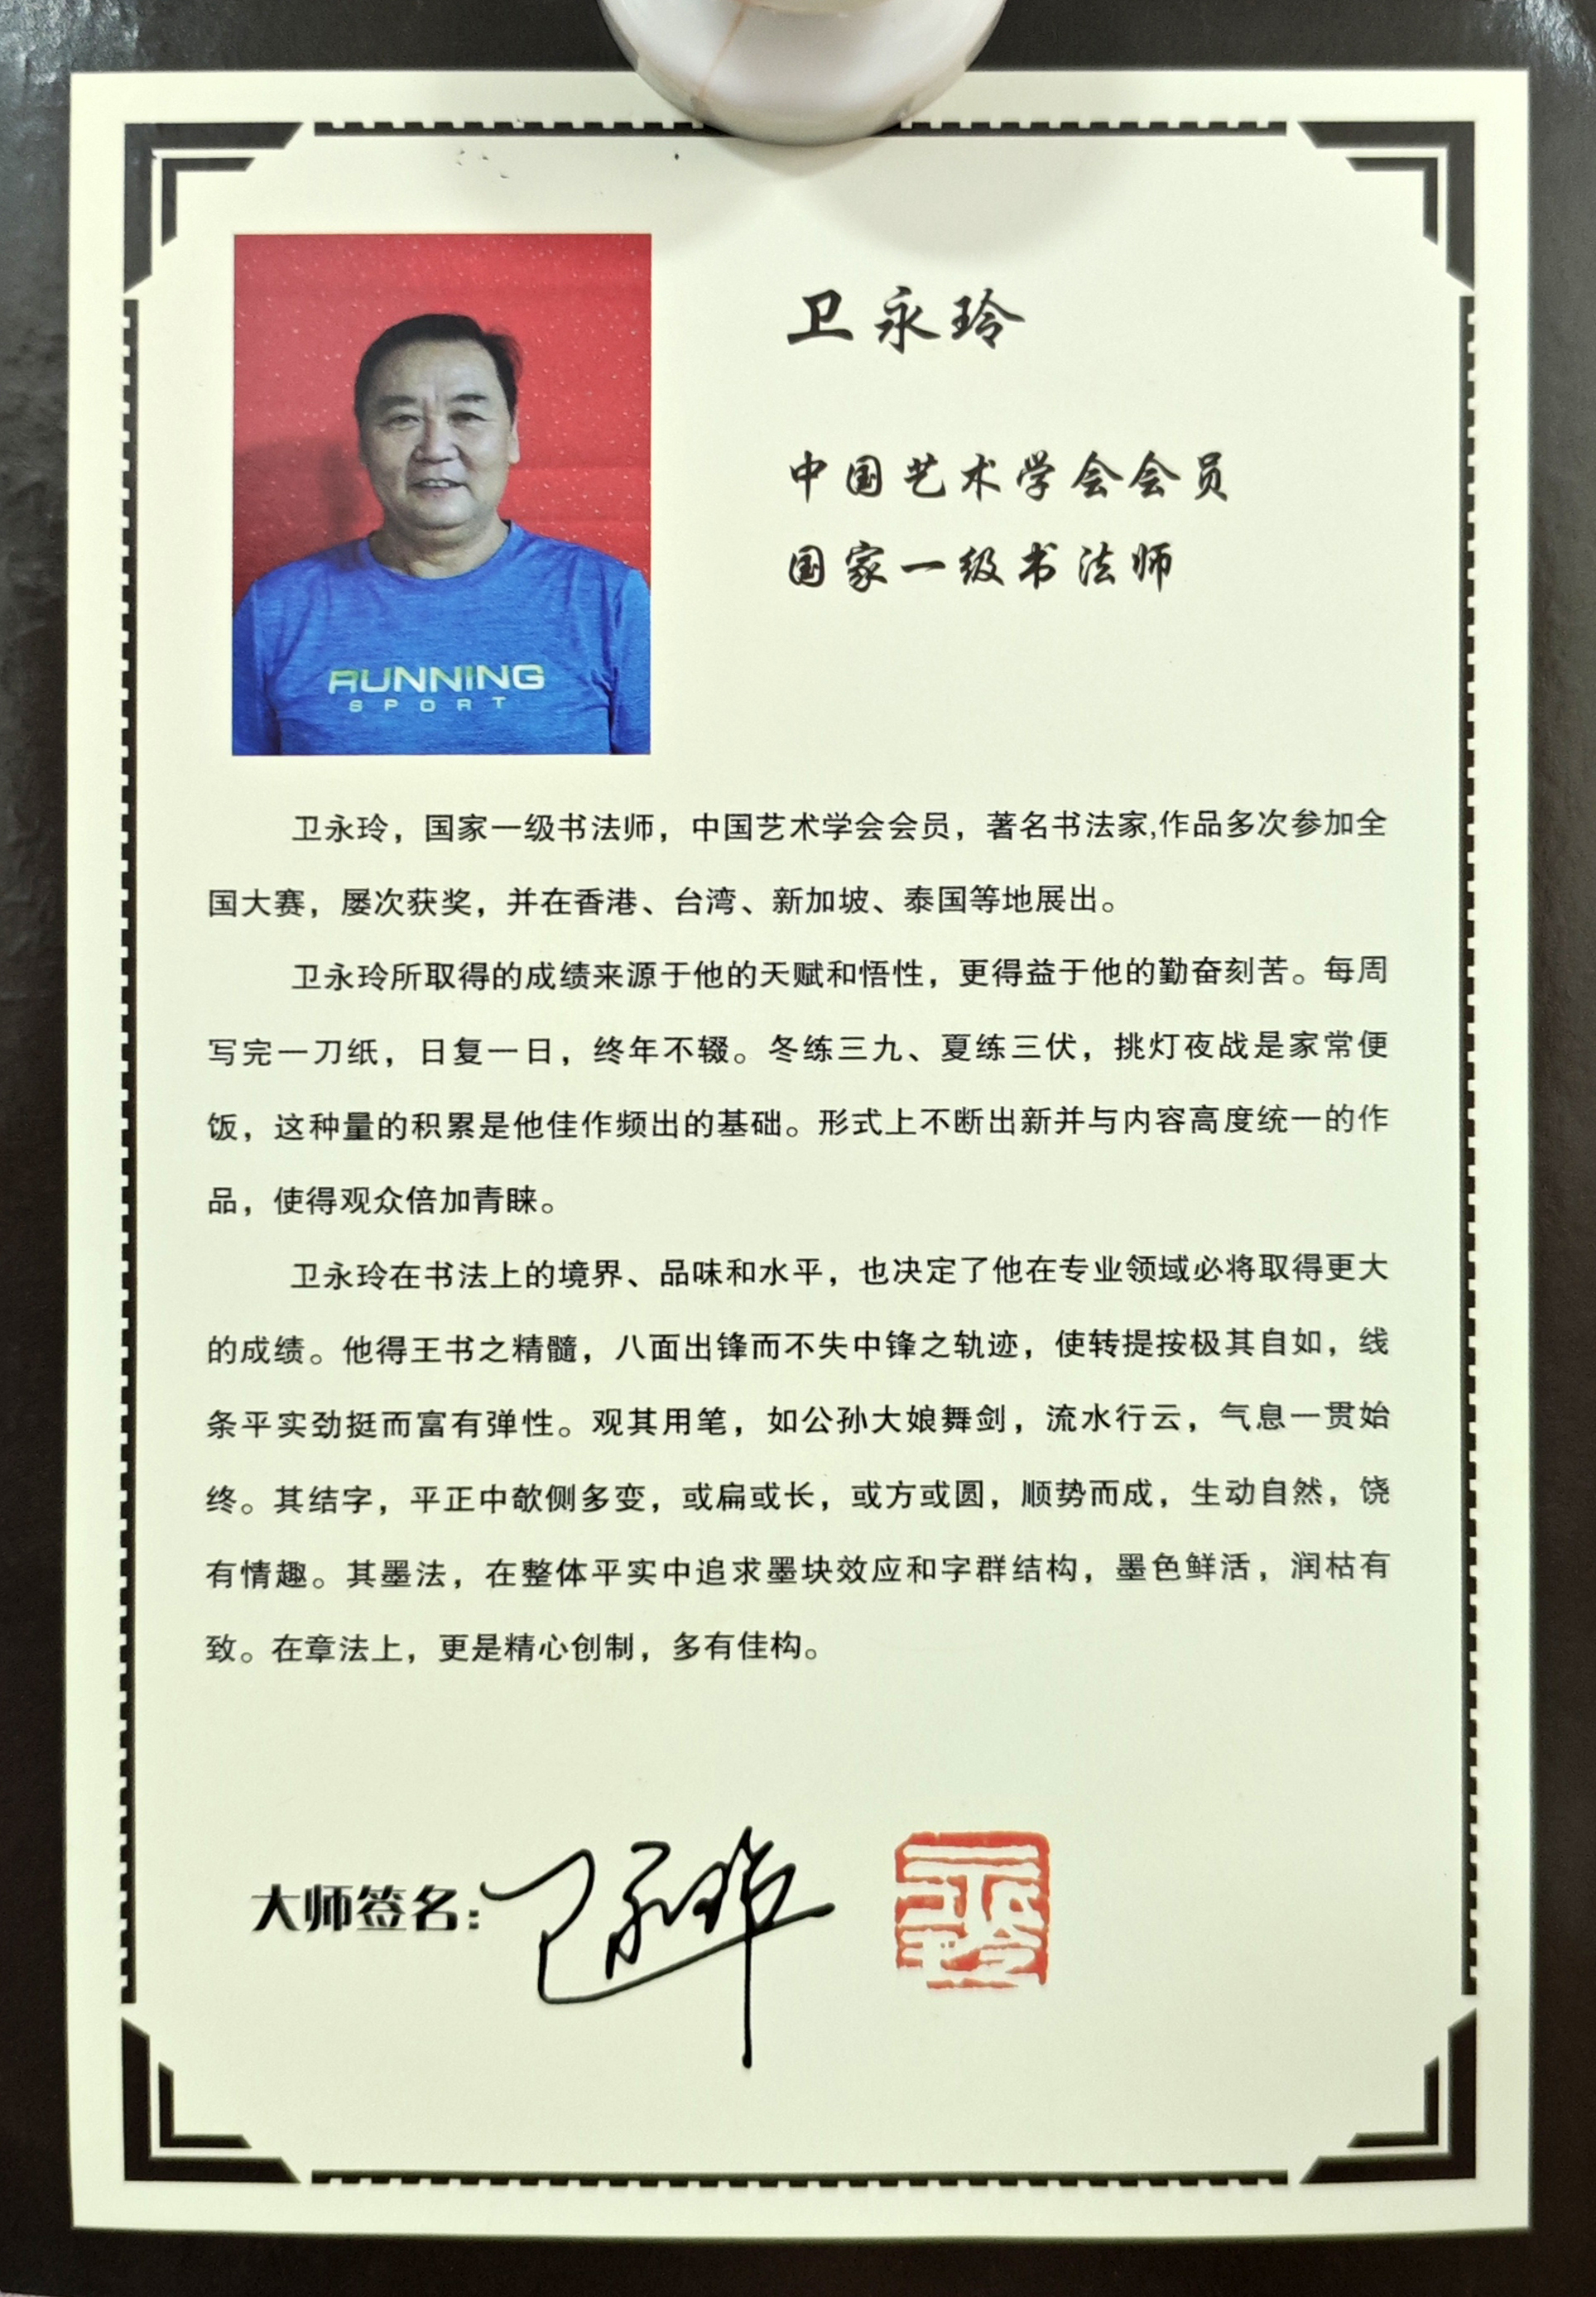 卫永玲
中国艺术学会会员
国家一级书法师
RUNNING
SPORT
卫永玲，国家一级书法师，中国艺术学会会员，著名书法家,作品多次参加全
国大赛，屡次获奖，并在香港、台湾、新加坡、泰国等地展出。
卫永玲所取得的成绩来源于他的天赋和悟性，更得益于他的勤奋刻苦。每周
写完一刀纸，日复一日，终年不辍。冬练三九、夏练三伏，挑灯夜战是家常便
饭，这种量的积累是他佳作频出的基础。形式上不断出新并与内容高度统一的作
品，使得观众倍加青睐。
卫永玲在书法上的境界、品味和水平，也决定了他在专业领域必将取得更大
的成绩。他得王书之精髓，八面出锋而不失中锋之轨迹，使转提按极其自如，线
条平实劲挺而富有弹性。观其用笔，如公孙大娘舞剑，流水行云，气息一贯始
终。其结字，平正中欹侧多变，或扁或长，或方或圆，顺势而成，生动自然，饶
有情趣。其墨法，在整体平实中追求墨块效应和字群结构，墨色鲜活，润枯有
致。在章法上，更是精心创制，多有佳构。
大师签名：卫永玲